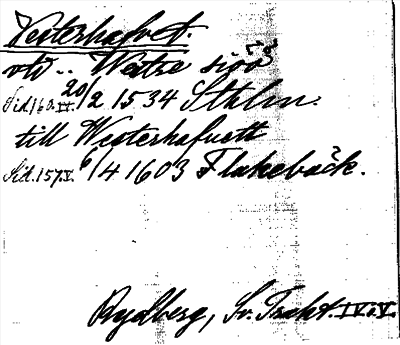 Westerhafvet.
vtv .. Westre siöö
Sid. 160. IV. 20/2 1534 Sthlm.
till Westerhafuett
Sid. 157. V. 6/4 1603 Flakebäck.
Rydberg, Sv. Trakt. IV o. V.